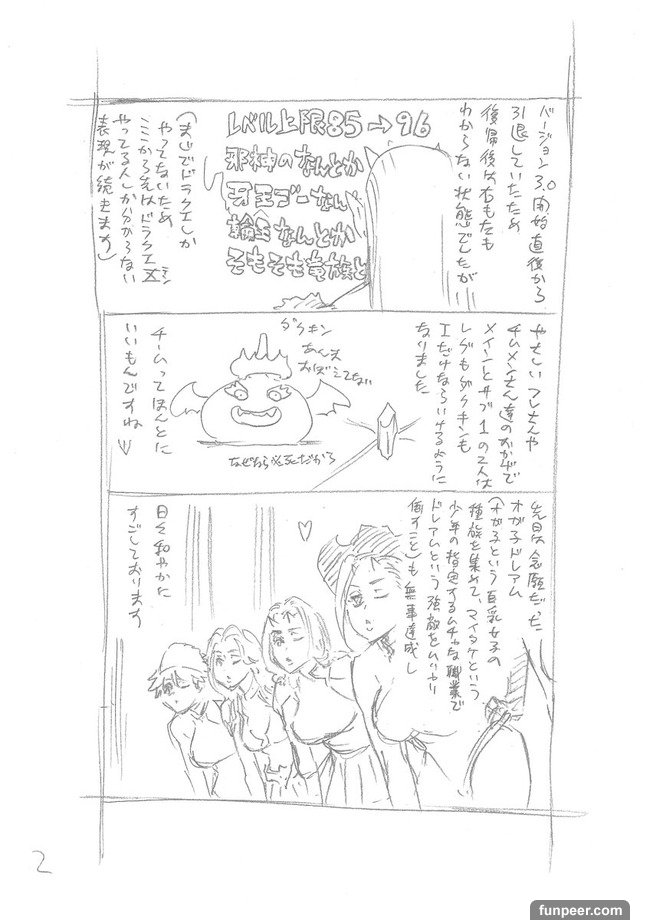 バージョン3.0開始直後から
引退していたため
復帰後は右も左も
わからない状態でしたが
レベル上限85→96
邪神のなんとか
牙王ゴーなん
輪王なんとか
そもそも竜族と
(まじでドラクエしか
やってないため
ここから先はドラクエX
やってる人しか分からない
表現が続きます)
やさしいフレさんや
チムメンさん達のおかげで
メインとサブ1の2人は
レグもダークキンも
Iだけならいけるように
なりました
ダークキン
あんま
おぼえてない
なぜなら必死だから
チームってほんとに
いいもんですね
先日は念願だった
オガ子ドレアム
(オガ子という巨乳女子の
種族を集めて、マイタケという
少年の指定するムチャな職業で
ドレアムという強敵を
倒すこと)も無事達成し
日々和やかに
すごしております
2
funpeer.com